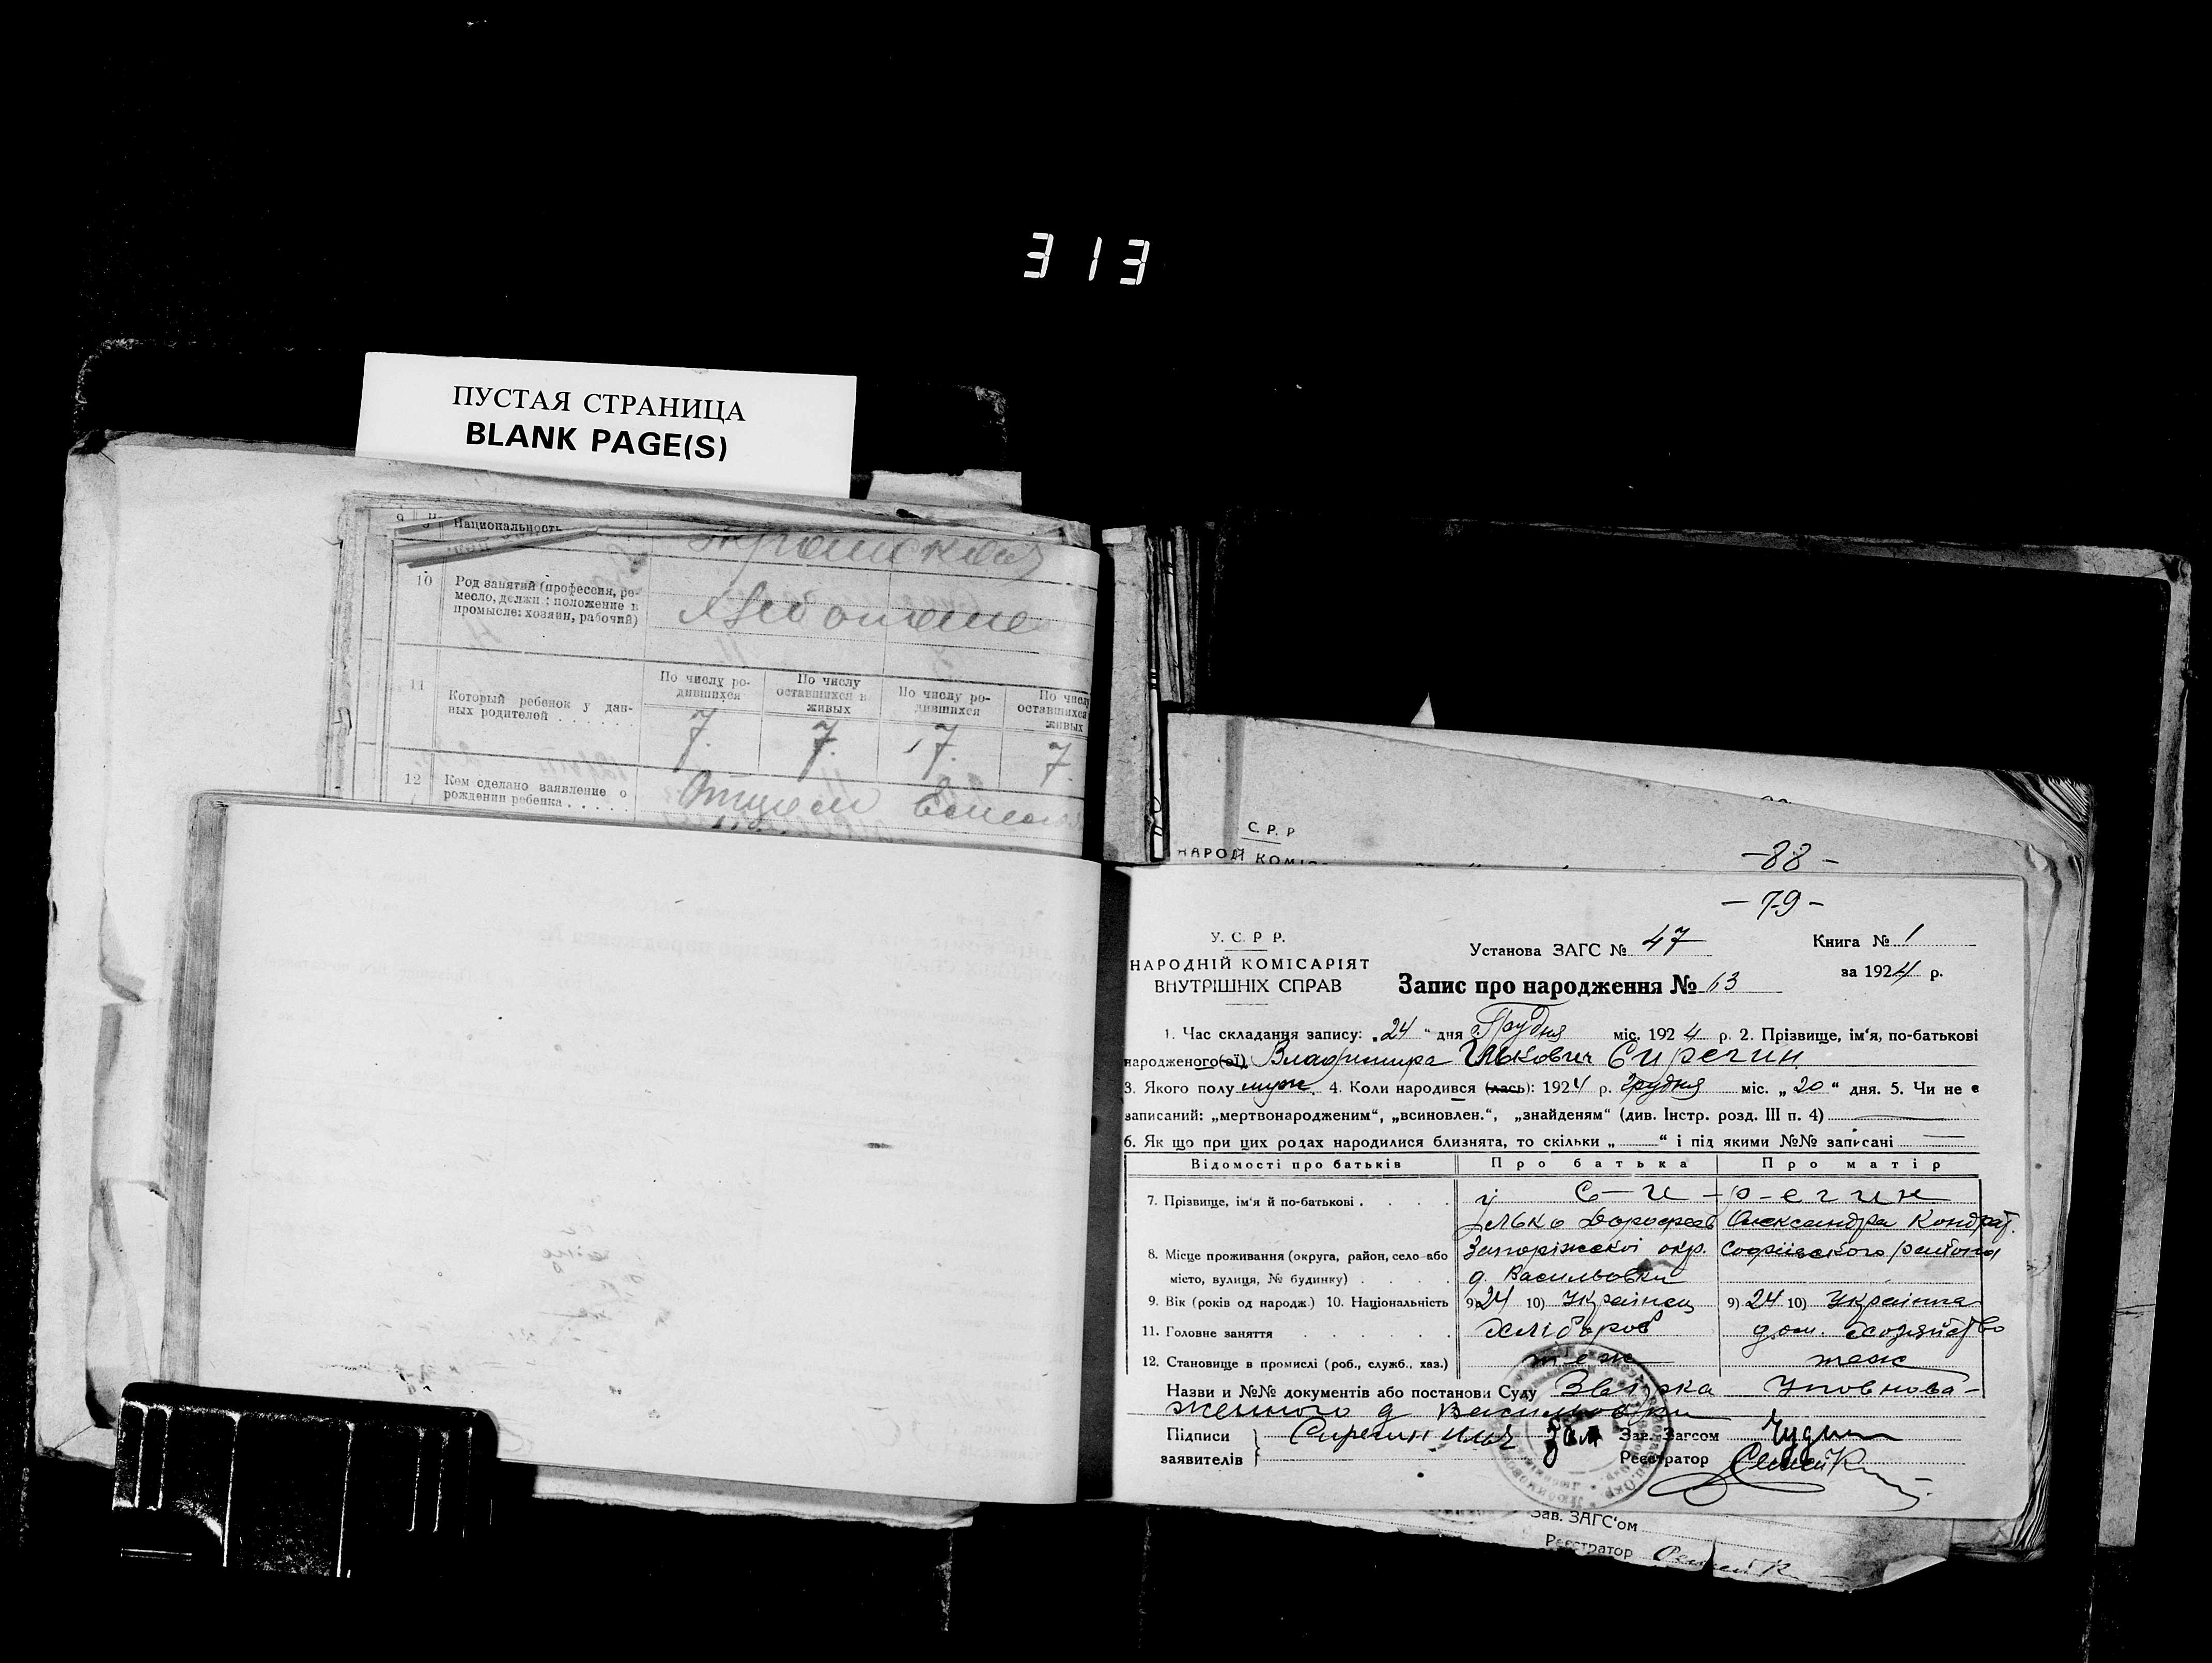 313
ПУСТАЯ СТРАНИЦА
BLANK PAGE(S)
9 Национальность
10 Род занятий (профессия, ре-
месло, должн: положение в
промысле: хозяин, рабочий)
11 Который ребенок у дан-
ных родителей . . . . . .
По числу ро-
дившихся
По числу
оставшихся в
живых
По числу ро-
дившихся
По числу
оставшихся
живых
7. 7. 7. 7.
12 Кем сделано заявление о
рождении ребенка . . . . .
Отцем
С. Р. Р
НАРОД КОМІС
-88-
-79-
У. С. Р. Р.
НАРОДНІЙ КОМІСАРІЯТ
ВНУТРІШНІХ СПРАВ
Установа ЗАГС № 47
Книга № 1
за 1924 р.
Запис про народження № 13
1. Час складання запису: „24“ дня Грудня міс. 1924 р. 2. Прізвище, ім‘я, по-батькові
народженого(ої) Владимира Ількович Сирегин
3. Якого полу муж. 4. Коли народився (лась): 1924 р. грудня міс. „20“ дня. 5. Чи не є
записаний: „мертвонародженим“, „всиновлен.“, „знайденям“ (див. Інстр. розд. III п. 4)
6. Як що при цих родах народилися близнята, то скільки „ “ і під якими №№ записані
Відомості про батьків Про батька Про матір
7. Прізвище, ім‘я й по-батькові . . . . С-и-р-егин
Ілько Дорофеев Олександра Кондрат.
8. Місце проживання (округа, район, село або Запоріжської окр. Софіївского района
місто, вулиця, № будинку) . . . . д. Васильовки
9. Вік (років од народж.) 10. Національність 9) 24 10) Українец 9) 24 10) Украінка
11. Головне заняття . . . . . . Хлібороб дом. хозяйство
12. Становище в промислі (роб., служб., хаз.) теж теж
Назви и №№ документів або постанови Суду Звірка уповнова-
женного д Васильовки
Підписи
заявителів
Сирегин Илич
Зав. Загсом
Реєстратор
Зав. ЗАГС‘ом
Реєстратор